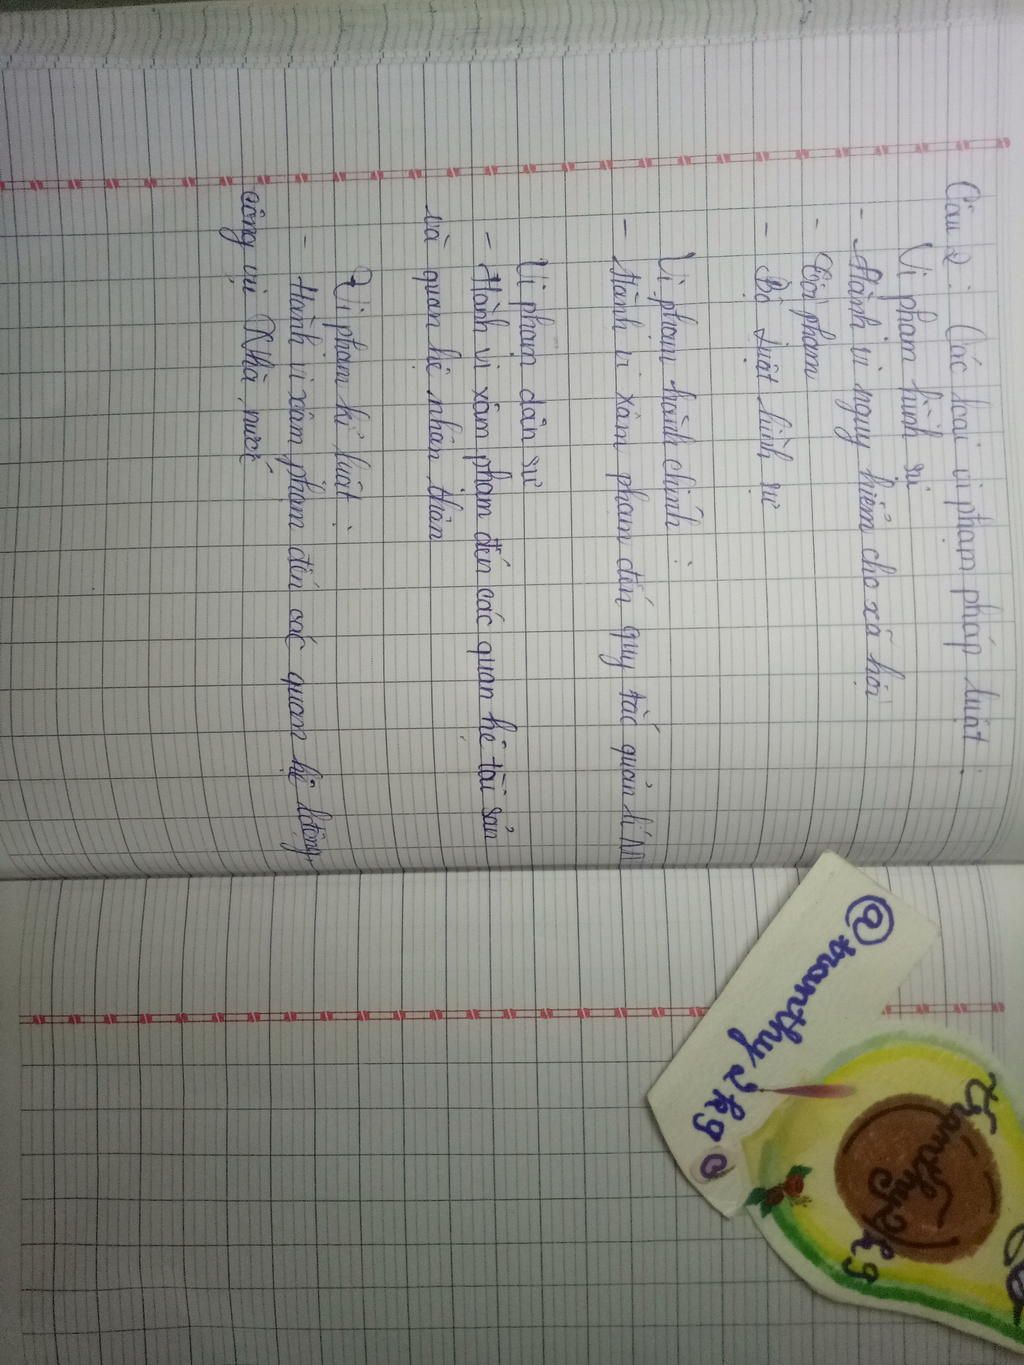 Câu 2: Các loại vi phạm pháp luật:
Vi phạm hình sự
- Hành vi nguy hiểm cho xã hội
- Tội phạm
- Bộ luật hình sự
Vi phạm hành chính:
- Hành vi xâm phạm đến quy tắc quản lí NN
Vi phạm dân sự
- Hành vi xâm phạm đến các quan hệ tài sản
và quan hệ nhân thân
Vi phạm kỉ luật:
- Hành vi xâm phạm đến các quan hệ lđộng,
công vụ Nhà nước
@tramthy2kg
tramthy2kg